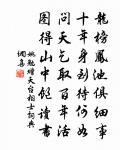 龍榜鳳池俱細事
十年身到待何如
問天乞取百年活
圖得山中飽讀書
姚勉贈天台相士詞典